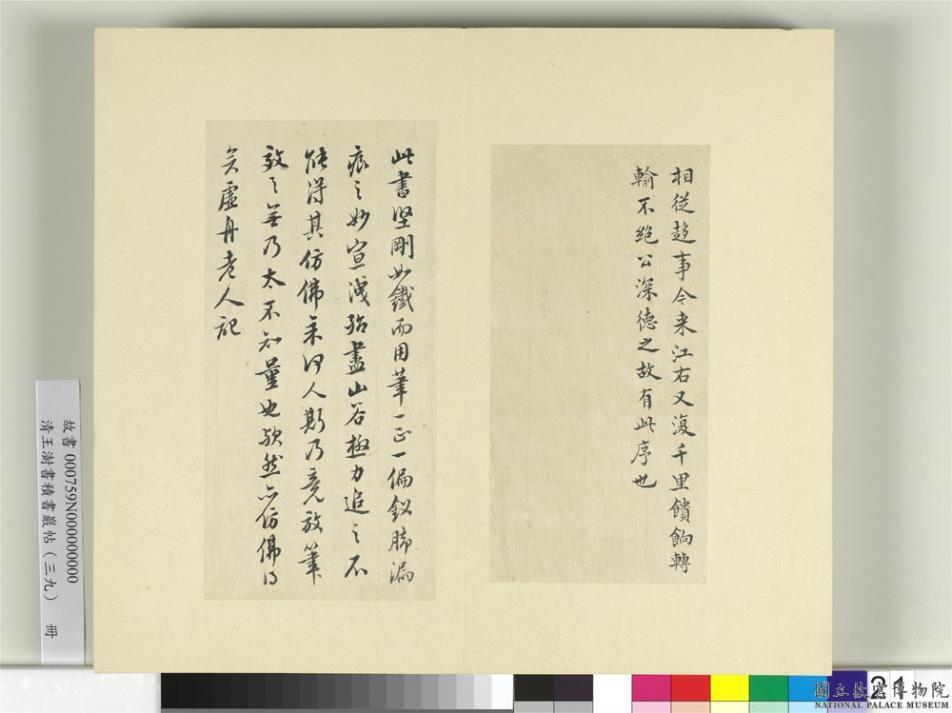 相從趍事今来江右又復千里饋餉轉
輸不絶公深德之故有此序也
此書坚剛如鐵而用筆一正一偏釵脚漏
痕之妙宣洩殆盡山谷極力追之不
能得其仿佛未何人斯乃竟放筆
效之無乃太不知量也然亦仿佛得
矣虛舟老人記
故書 000759N000000000
清王澍書積書巖帖（三九） 冊
21
國立故宮博物院
NATIONAL PALACE MUSEUM